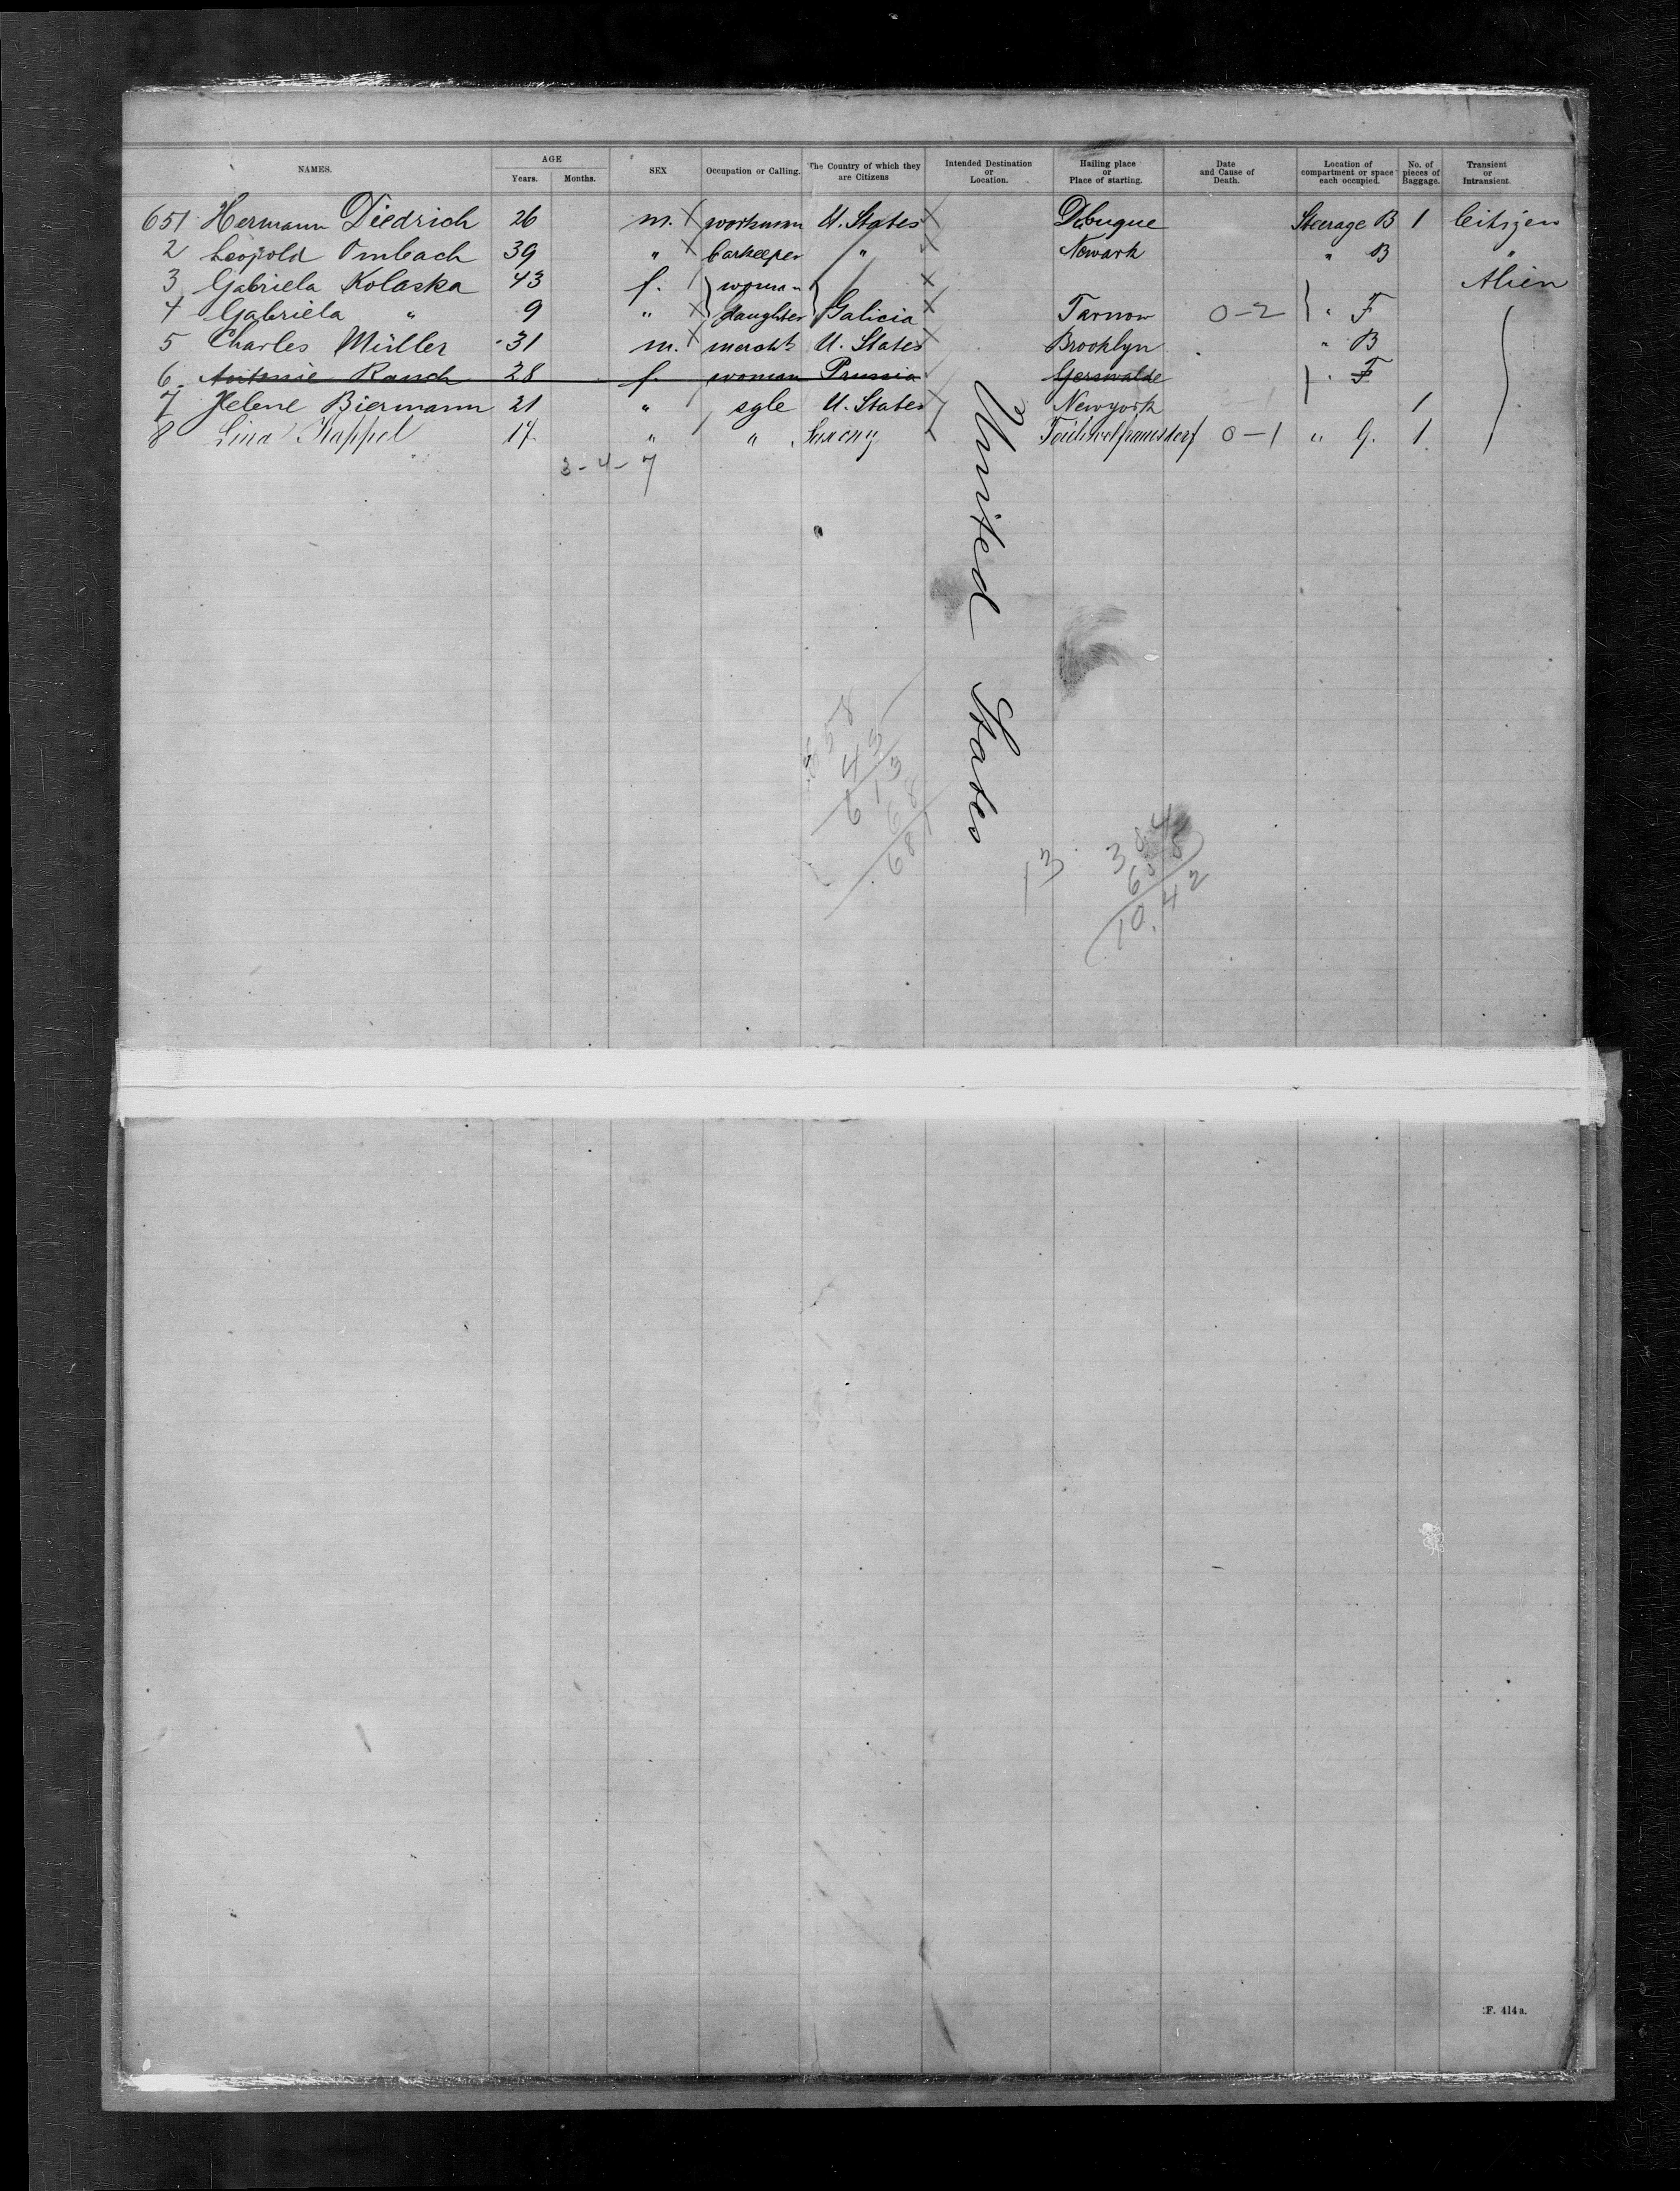 NAMES. AGE Years. Months. SEX Occupation or Calling. The Country of which they are Citizens Intended Destination or Location. Hailing place or Place of starting. Date and Cause of Death. Location of compartment or space each occupied. No. of pieces of Baggage. Transient or Intransient.
651 Hermann Diedrich 26 m. workmann U. States Dubuque Steerage B 1 Citizen
2 Leopold Ombach 39 " barkeeper " Newark " B "
3 Gabriela Kolaska 43 f. woman Alien
4 Gabriela " 9 " daughter Galicia Tarnow 0-2 " F
5 Charles Müller 31 m. mercht U. States Brooklyn " B
6 Antonie Rauch 28 f. woman Prussia Gerswalde " F
7 Helene Biermann 21 " sgle U. States Newyork 1
8 Lina Kappel 17 " " Saxony 0-1 " G. 1
3-4-7
United States
658
43
613
68
681
13
384
658
10.42
F. 414a.